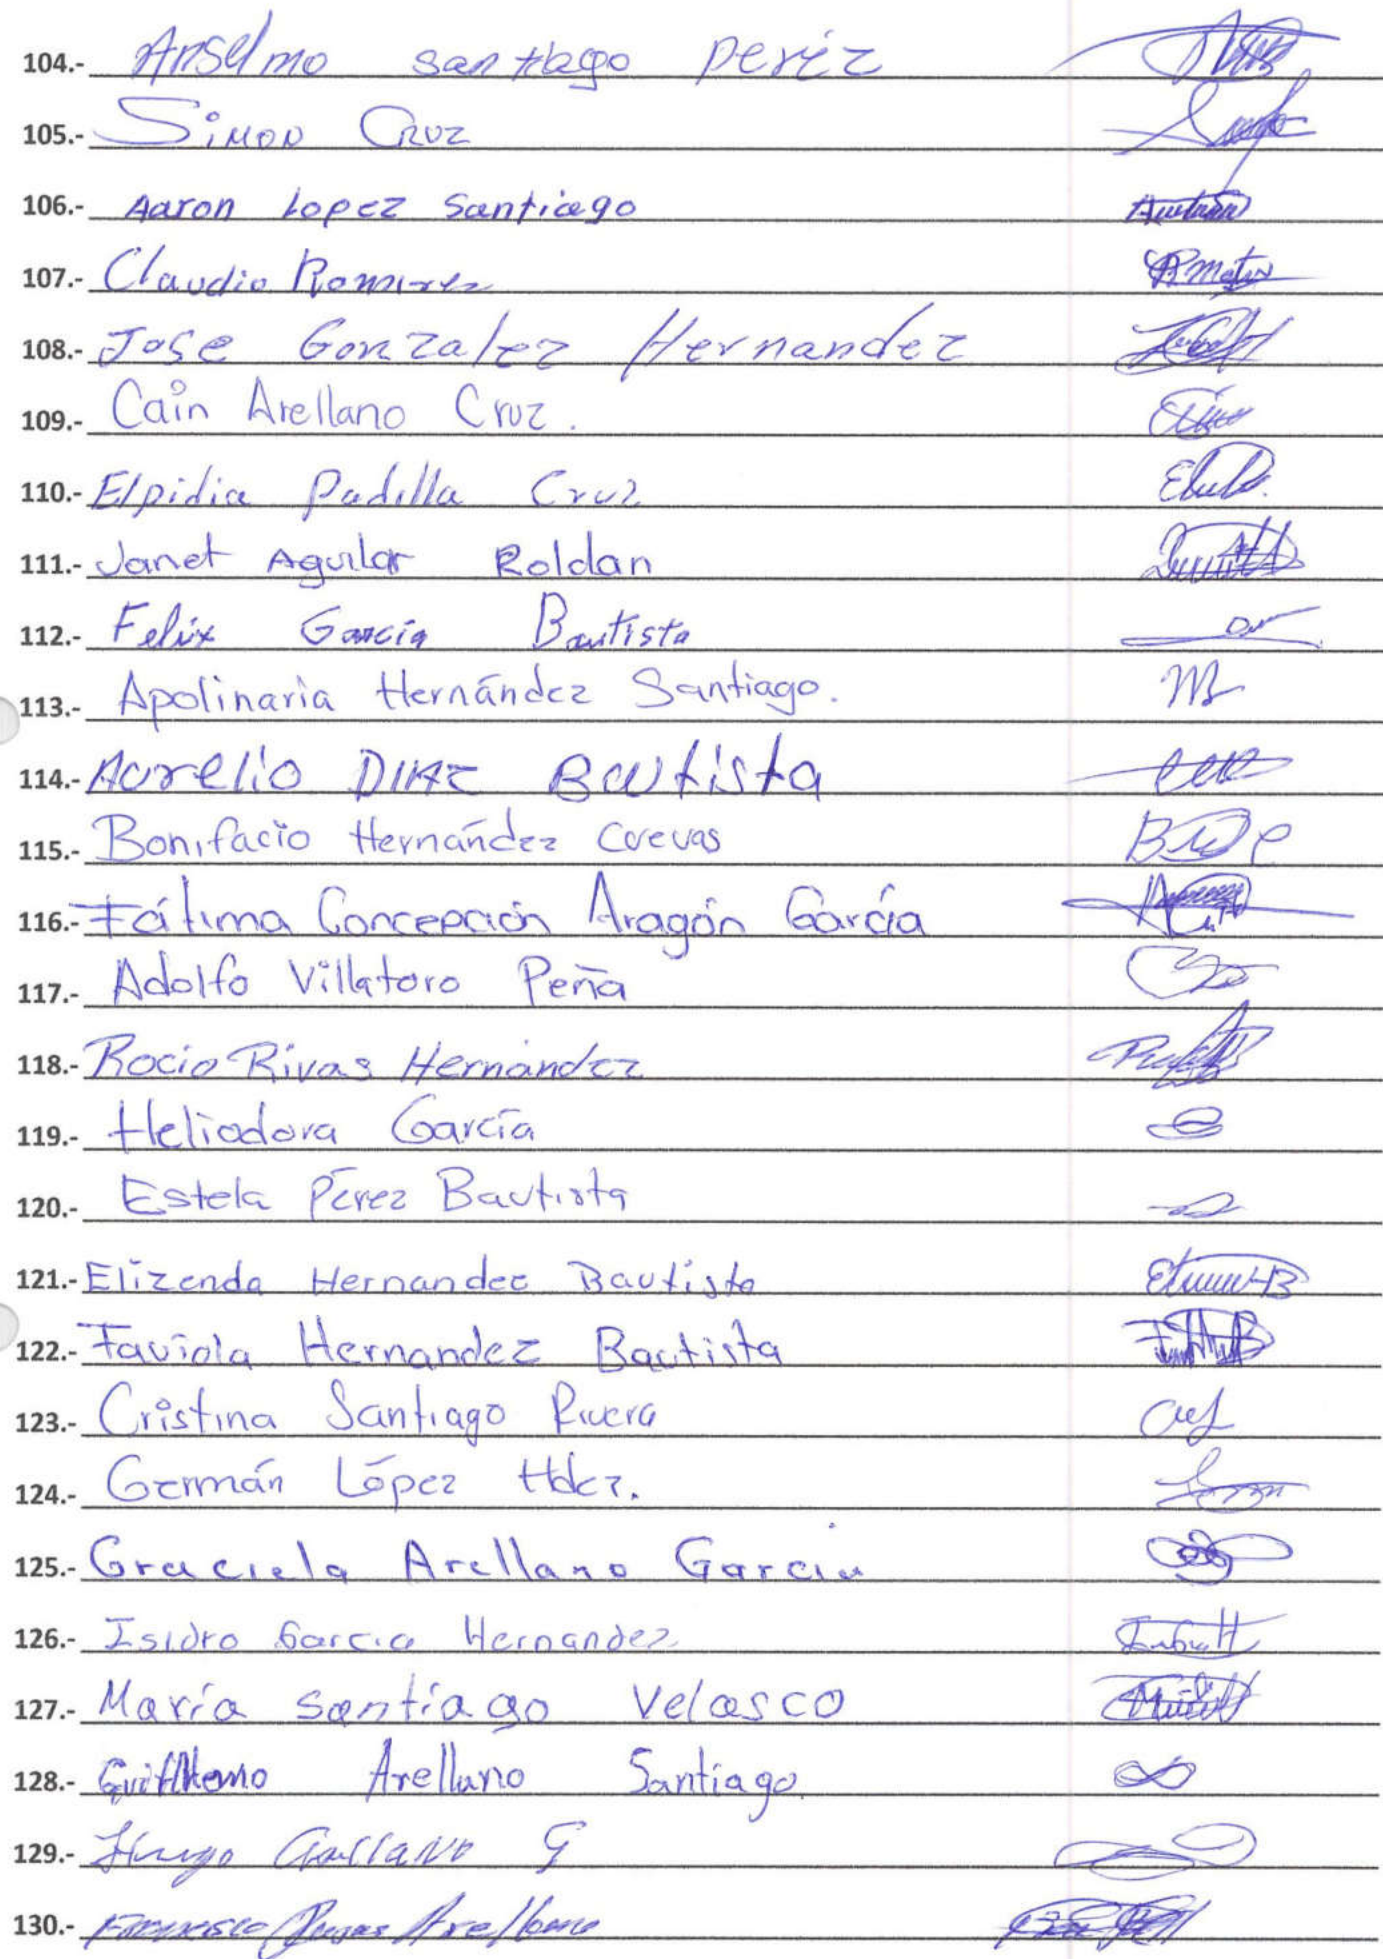 104.- Anselmo santiago peréz
105.- Simon Cruz
106.- Aaron Lopez Santiago
107.- Claudio Ramirez
108.- Jose Gonzalez Hernandez
109.- Cain Arellano Cruz.
110.- Elpidia Padilla Cruz
111.- Janet Aguilar Roldan
112.- Felix Garcia Bautista
113.- Apolinaria Hernández Santiago.
114.- Aurelio DIAZ Bautista
115.- Bonifacio Hernández Cuevas
116.- Fátima Concepción Aragón García
117.- Adolfo Villatoro Peña
118.- Rocio Rivas Hernández
119.- Heliodora García
120.- Estela Pérez Bautista
121.- Elizenda Hernandez Bautista
122.- Faviola Hernandez Bautista
123.- Cristina Santiago Rivera
124.- Germán López Hdez.
125.- Graciela Arellano Garcia
126.- Isidro Garcia Hernandez
127.- María santiago Velasco
128.- Arellano Santiago
129.- Hugo G
130.- Francisco Arellano